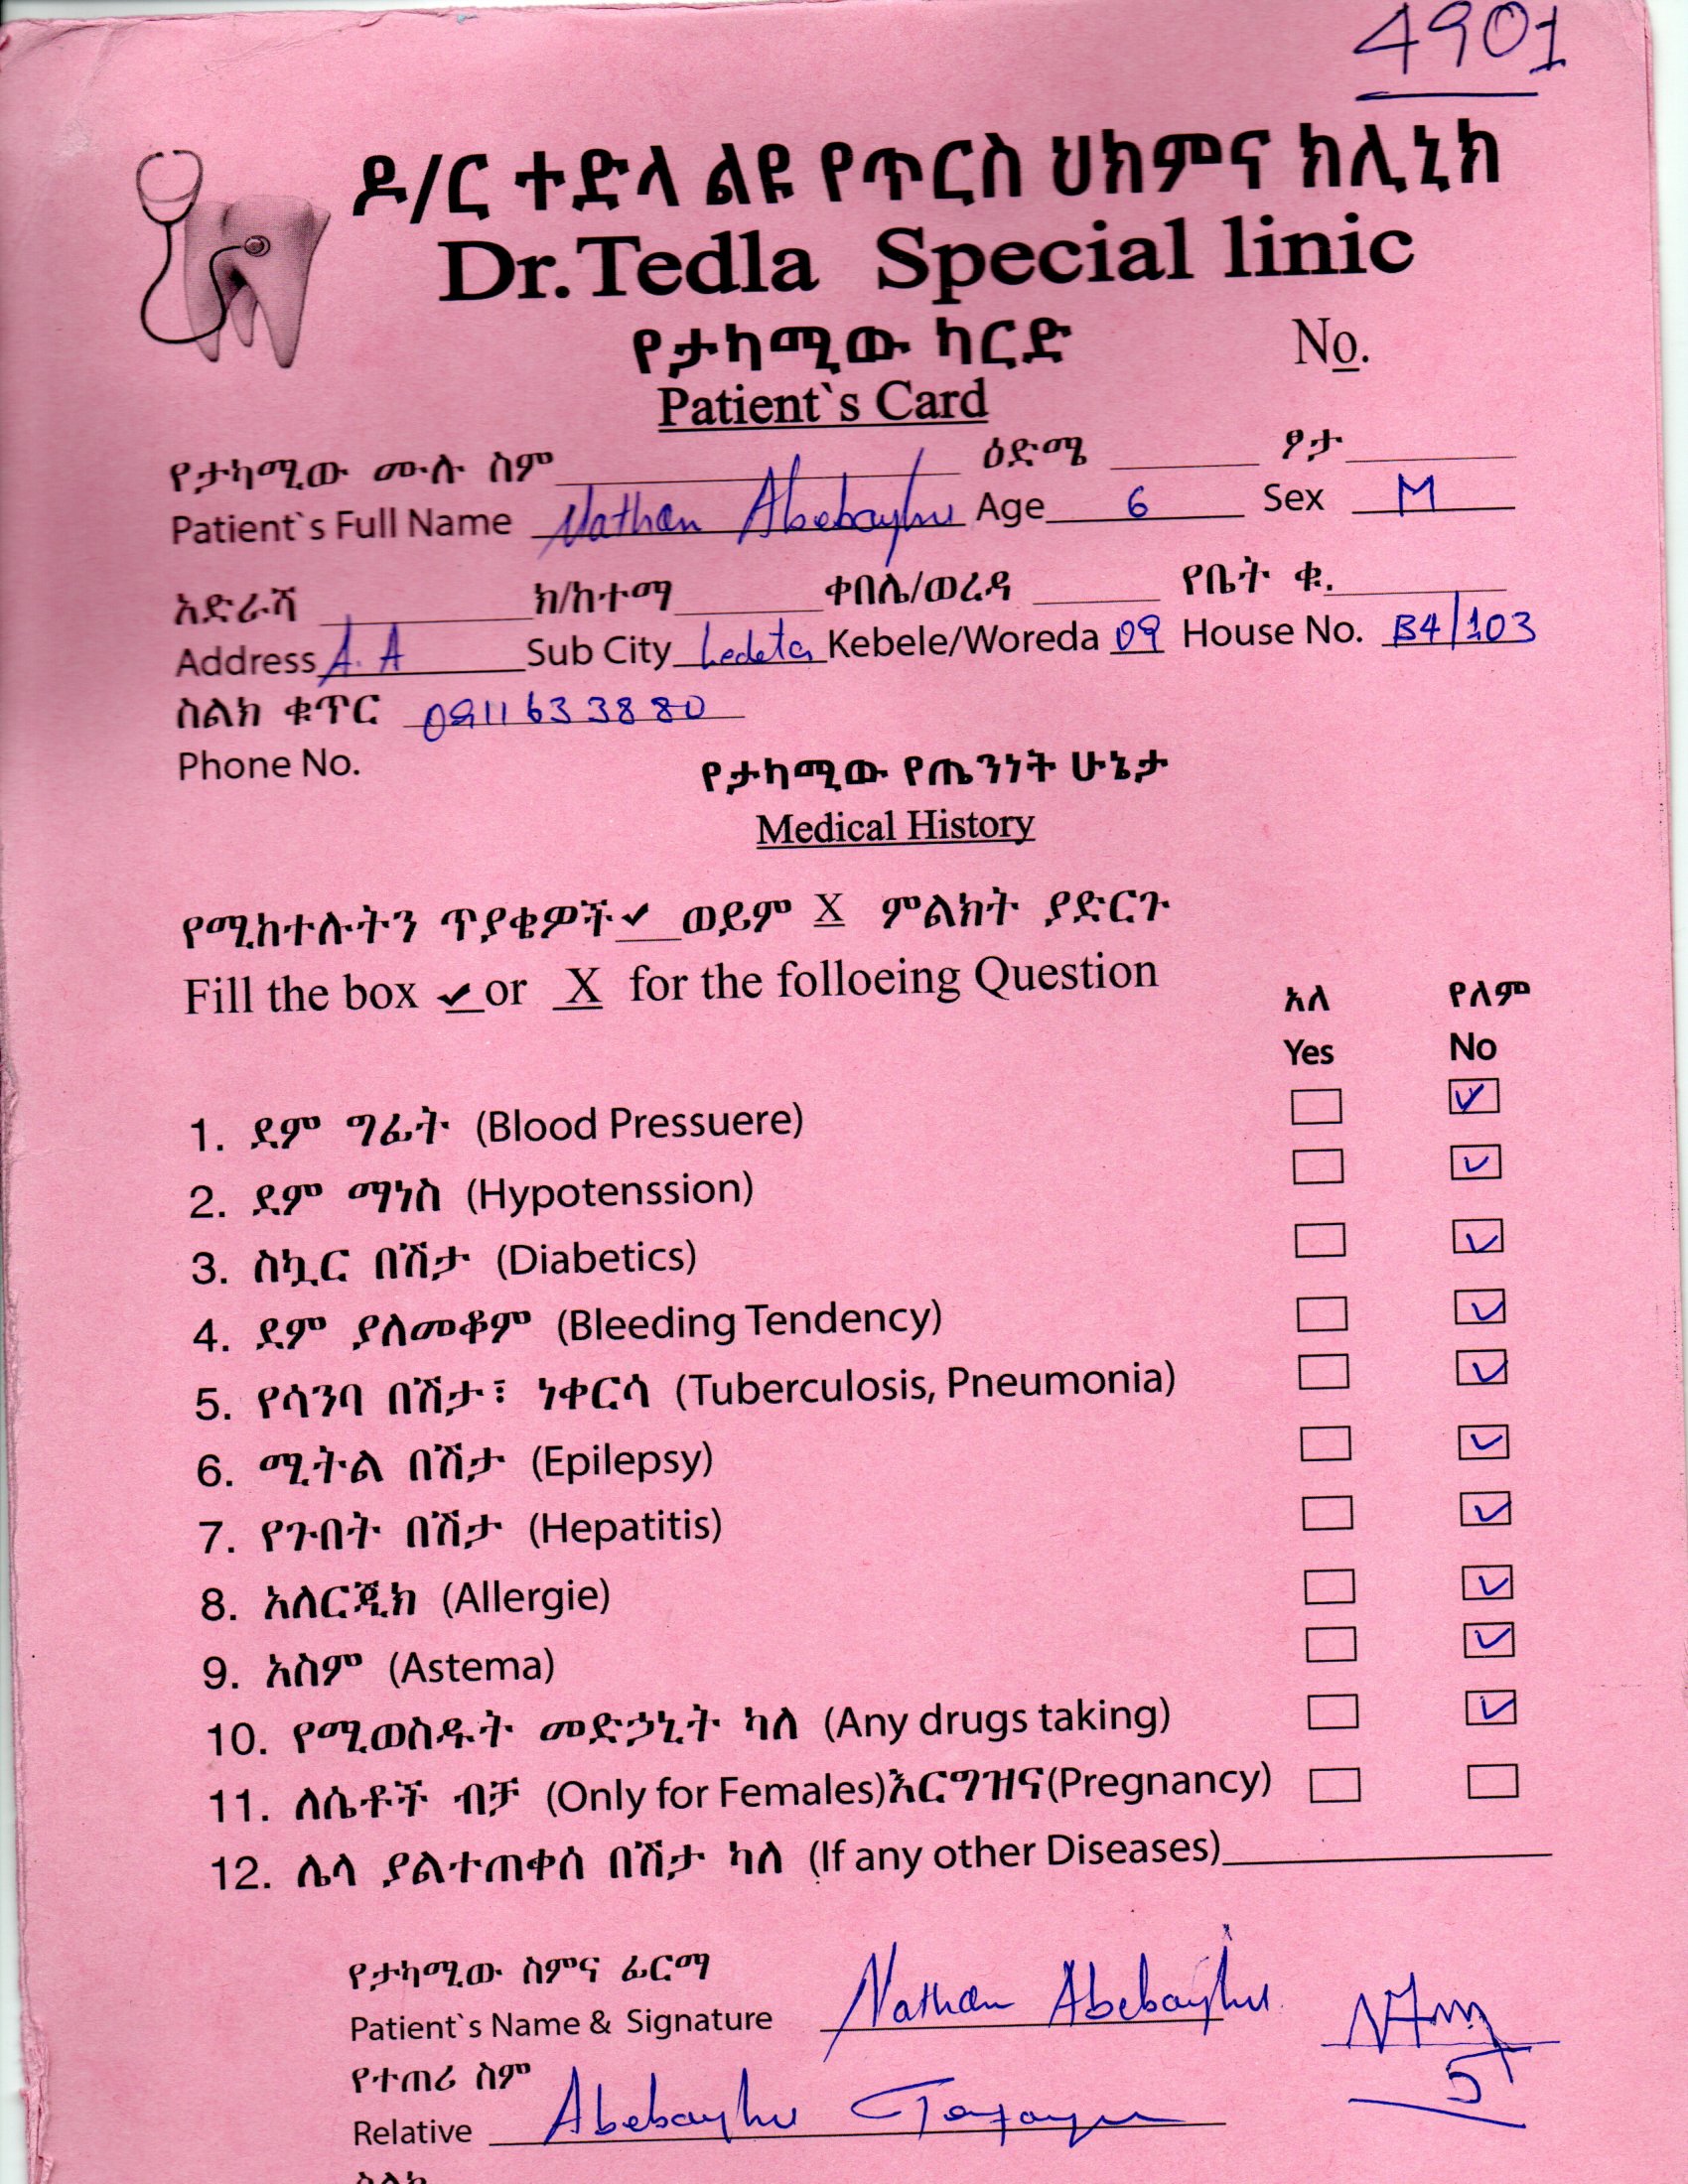 4901
ዶ/ር ተድላ ልዩ የጥርስ ህክምና ክሊኒክ
Dr.Tedla Special linic
የታካሚው ካርድ No.
Patient`s Card
የታካሚው ሙሉ ስም ዕድሜ ፆታ
Patient`s Full Name Nathan Abebayhu Age 6 Sex M
አድራሻ ክ/ከተማ ቀበሌ/ወረዳ የቤት ቁ.
Address A.A Sub City Ledeta Kebele/Woreda 09 House No. B4/103
ስልክ ቁጥር 0911633880
Phone No.
የታካሚው የጤንነት ሁኔታ
Medical History
የሚከተሉትን ጥያቄዎች ✓ ወይም X ምልክት ያድርጉ
Fill the box ✓ or X for the folloeing Question
አለ የለም
Yes No
1. ደም ግፊት (Blood Pressuere) ✓
2. ደም ማነስ (Hypotenssion) ✓
3. ስኳር በሽታ (Diabetics) ✓
4. ደም ያለመቆም (Bleeding Tendency) ✓
5. የሳንባ በሽታ፣ ነቀርሳ (Tuberculosis, Pneumonia) ✓
6. ሚትል በሽታ (Epilepsy) ✓
7. የጉበት በሽታ (Hepatitis) ✓
8. አለርጂክ (Allergie) ✓
9. አስም (Astema) ✓
10. የሚወስዱት መድኃኒት ካለ (Any drugs taking) ✓
11. ለሴቶች ብቻ (Only for Females)እርግዝና(Pregnancy)
12. ሌላ ያልተጠቀሰ በሽታ ካለ (If any other Diseases)
የታካሚው ስምና ፊርማ
Patient`s Name & Signature Nathan Abebayhu
የተጠሪ ስም
Relative Abebayhu
ስልክ